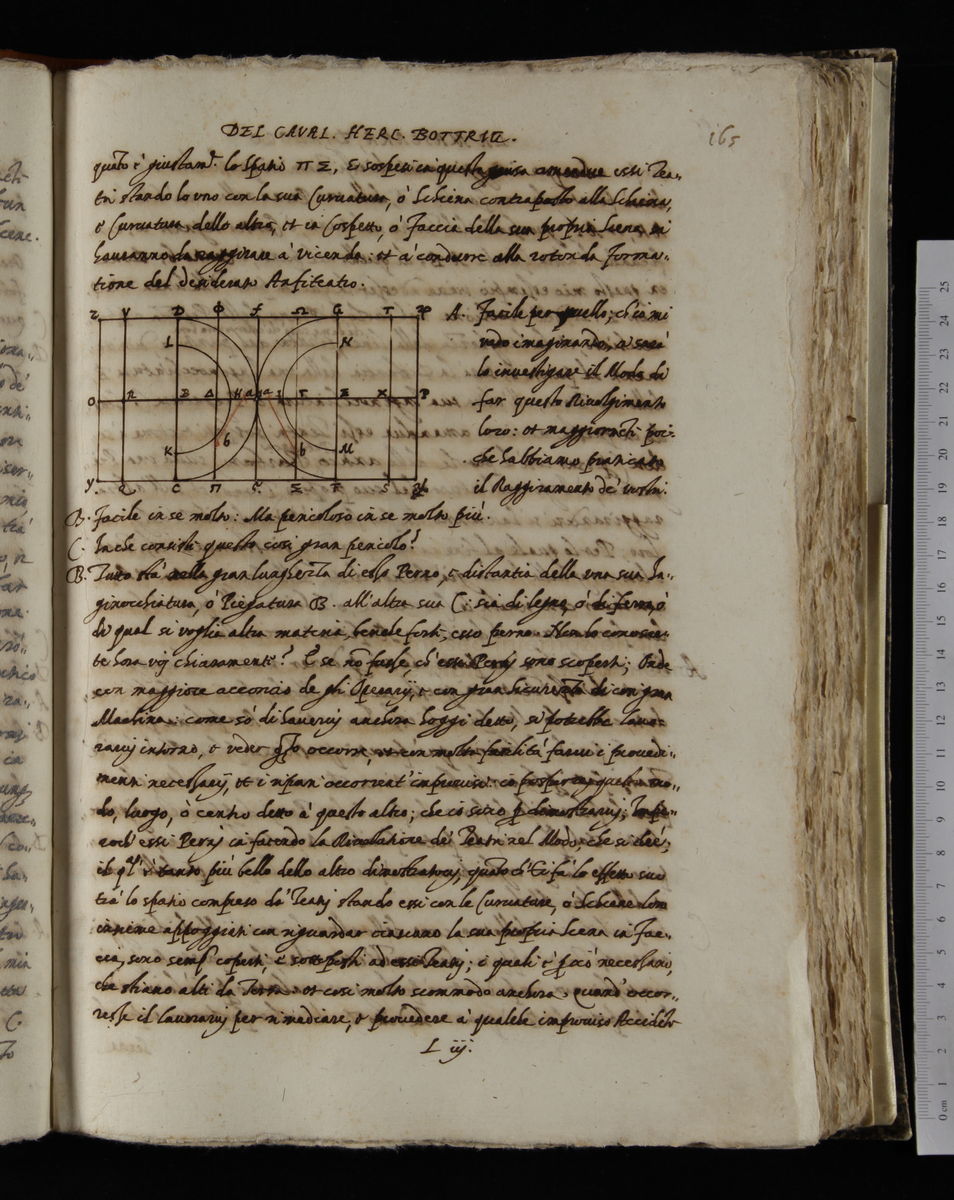 DEL CAVAL. HERC. BOTTRIG.
165
quãto è giustam.te lo spatio Π Σ, & sospesi in questa guisa amendue essi Tea-
tri stando lo uno con la sua Curvatura, ò Schiena contraposta alla Schiena,
e Curvatura dello altro, et in Cospetto, ò Faccia della sua propria Scena, si
hauranno da raggirare à vicenda: et à condurre alla rotonda forma-
tione del desiderato Anfiteatro.
A. Facile per quello; ch'io mi
vado imaginando, vi sarà
lo investigare il Modo di
far questo Rivolgimento
loro: et maggiormẽte poi
che habbiamo pratticato
il Raggiramento de' vostri.
D Φ F Ω G T
L N
O B Δ Γ Σ X P
K b b M
Y C Π Σ S
B. Facile in se molto: Ma pericoloso in se molto più.
C. In che consiste questo così gran pericolo?
B. Tutto stà nella gran lunghezza di esso Perno, e distantia della una sua In-
ginocchiatura, ò Piegatura B. all'altra sua C: sia di legno, ò di ferro, ò
di qual si voglia altra materia, benche forte, esso perno. Non lo conosce-
te hora voi chiaramente? E se nõ fusse, ch'essi Pernij sono scoperti; Onde
con maggiore acconcio de gli Operarij, e con gran sicurezza di con gran
Machina: come sò di haverui anchora hoggi detto, si potrebbe lavo-
rarui intorno, e veder q̃to occorre, et con molta facilità farui i provedi-
menti necessarij, et i ripari occorrenti
do, luogo, ò centro detto à questo altro; che io sono p̃ dimostrarui; Impe-
roch'essi Pernij in facendo la Rivolutione de' Teatri nel Modo, che si dee;
il q̃l' è tanto più bello dello altro dimostratoui, quãto ch'Ei fà lo effetto suo
trà lo spatio compreso da' Teatri stando essi con le Curvature, ò Schiene loro
insieme appoggiati con riguardar ciascuno la sua propria Scena in Fac-
cia, sono semp̃ coperti, e sottoposti ad essi Teatri; i quali è p̃ciò necessario,
che stiano alti da Terra: et così molto scommodo anchora, quand'occor-
resse il lavorarui per rimediare, e provedere à qualche improviso Accidẽte
L iij.